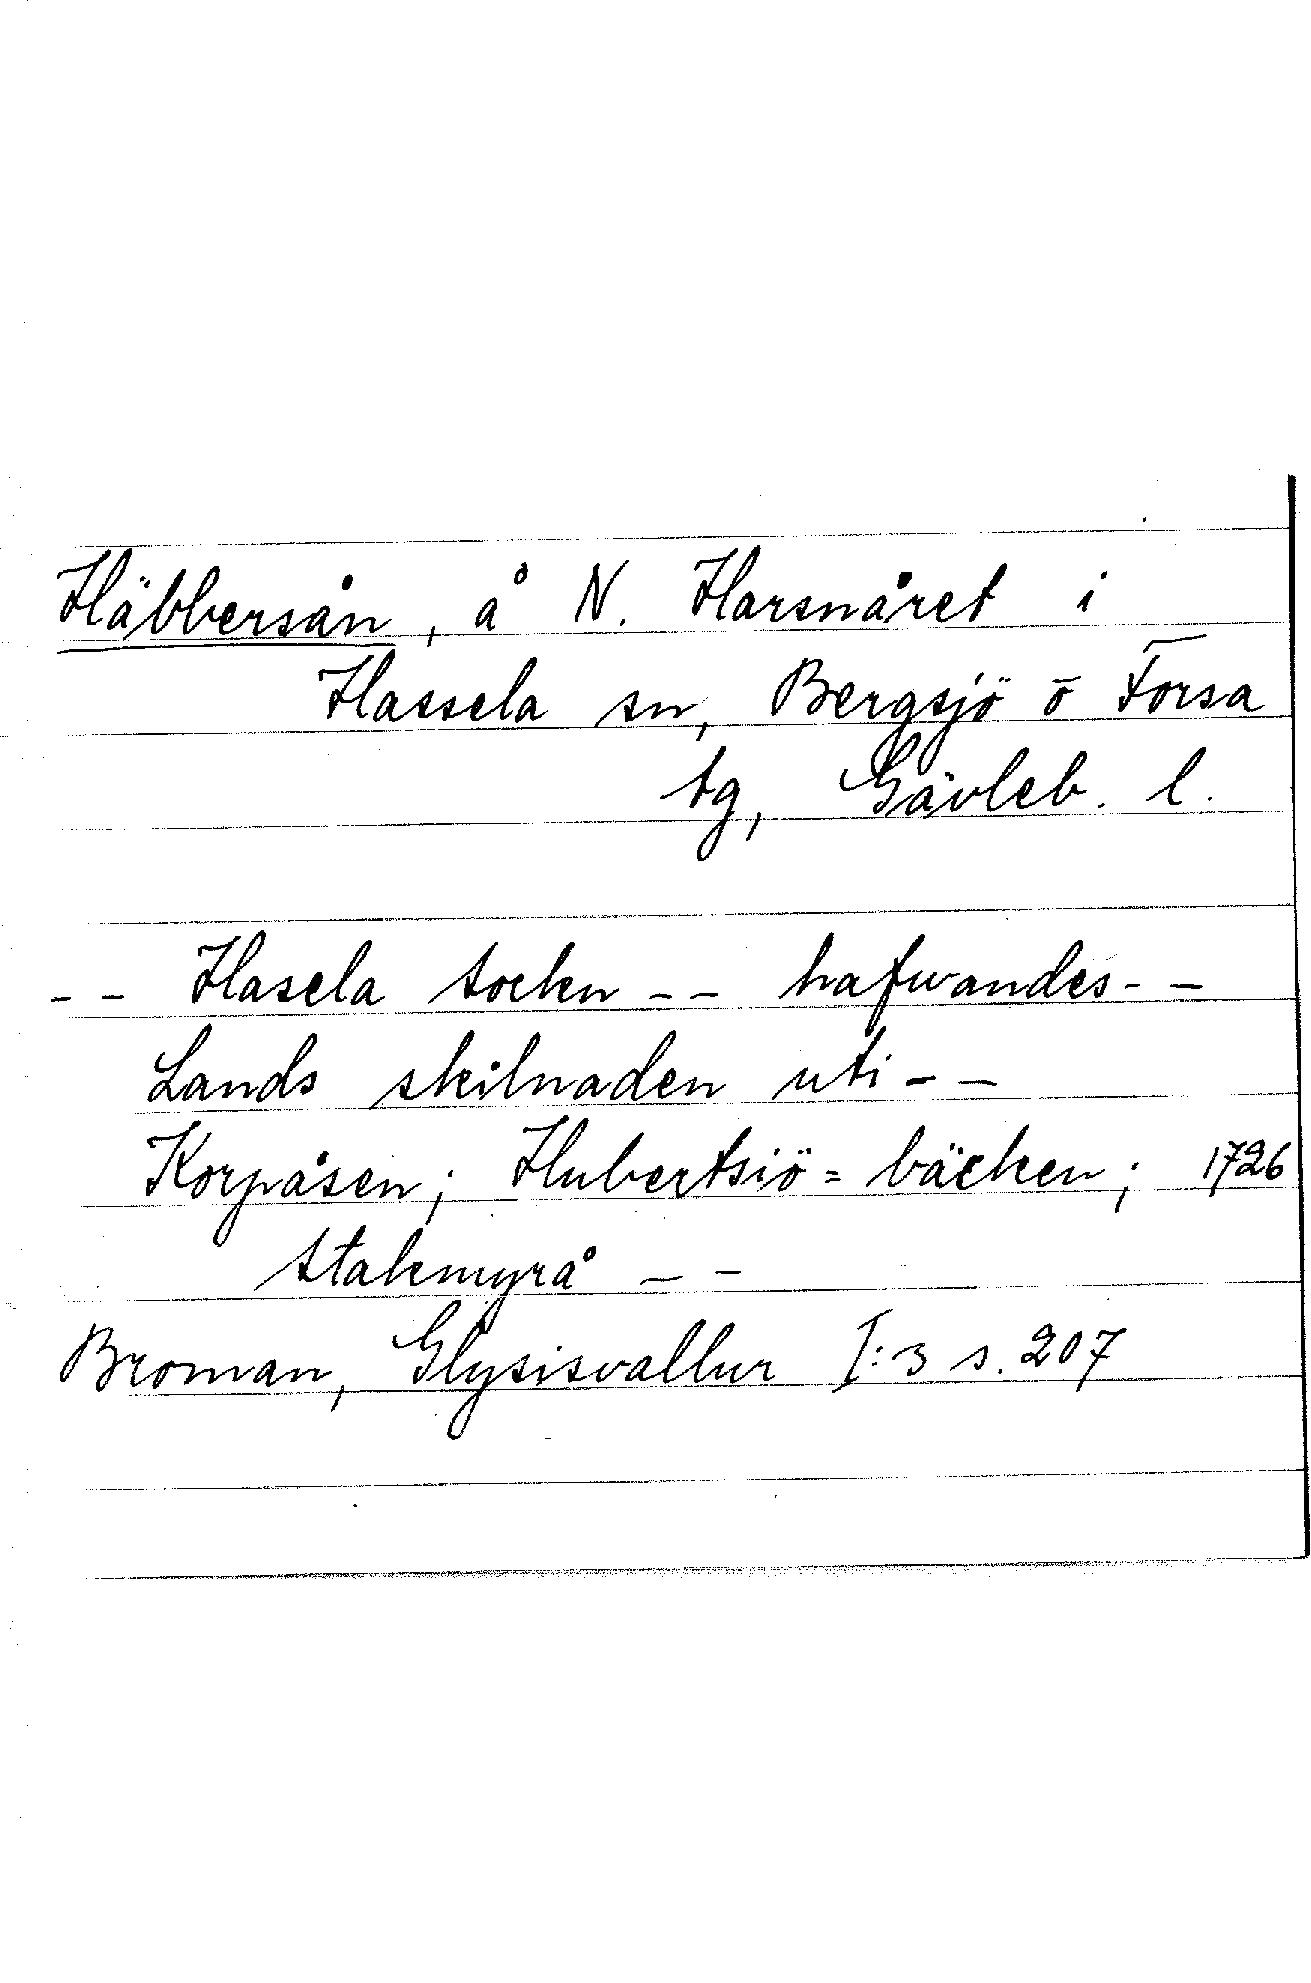 Häbbersån, å N. Harsnåret i
Hassela sn, Bergsjö o Forsa
tg, Gävleb. l.
-- Hasela sockn -- hafwandes --
Lands skilnaden uti --
Korpåsen; Hubertsiö=bäcken; 1726
Stakmyrå --
Broman, Glysisvallur I:3 s. 207